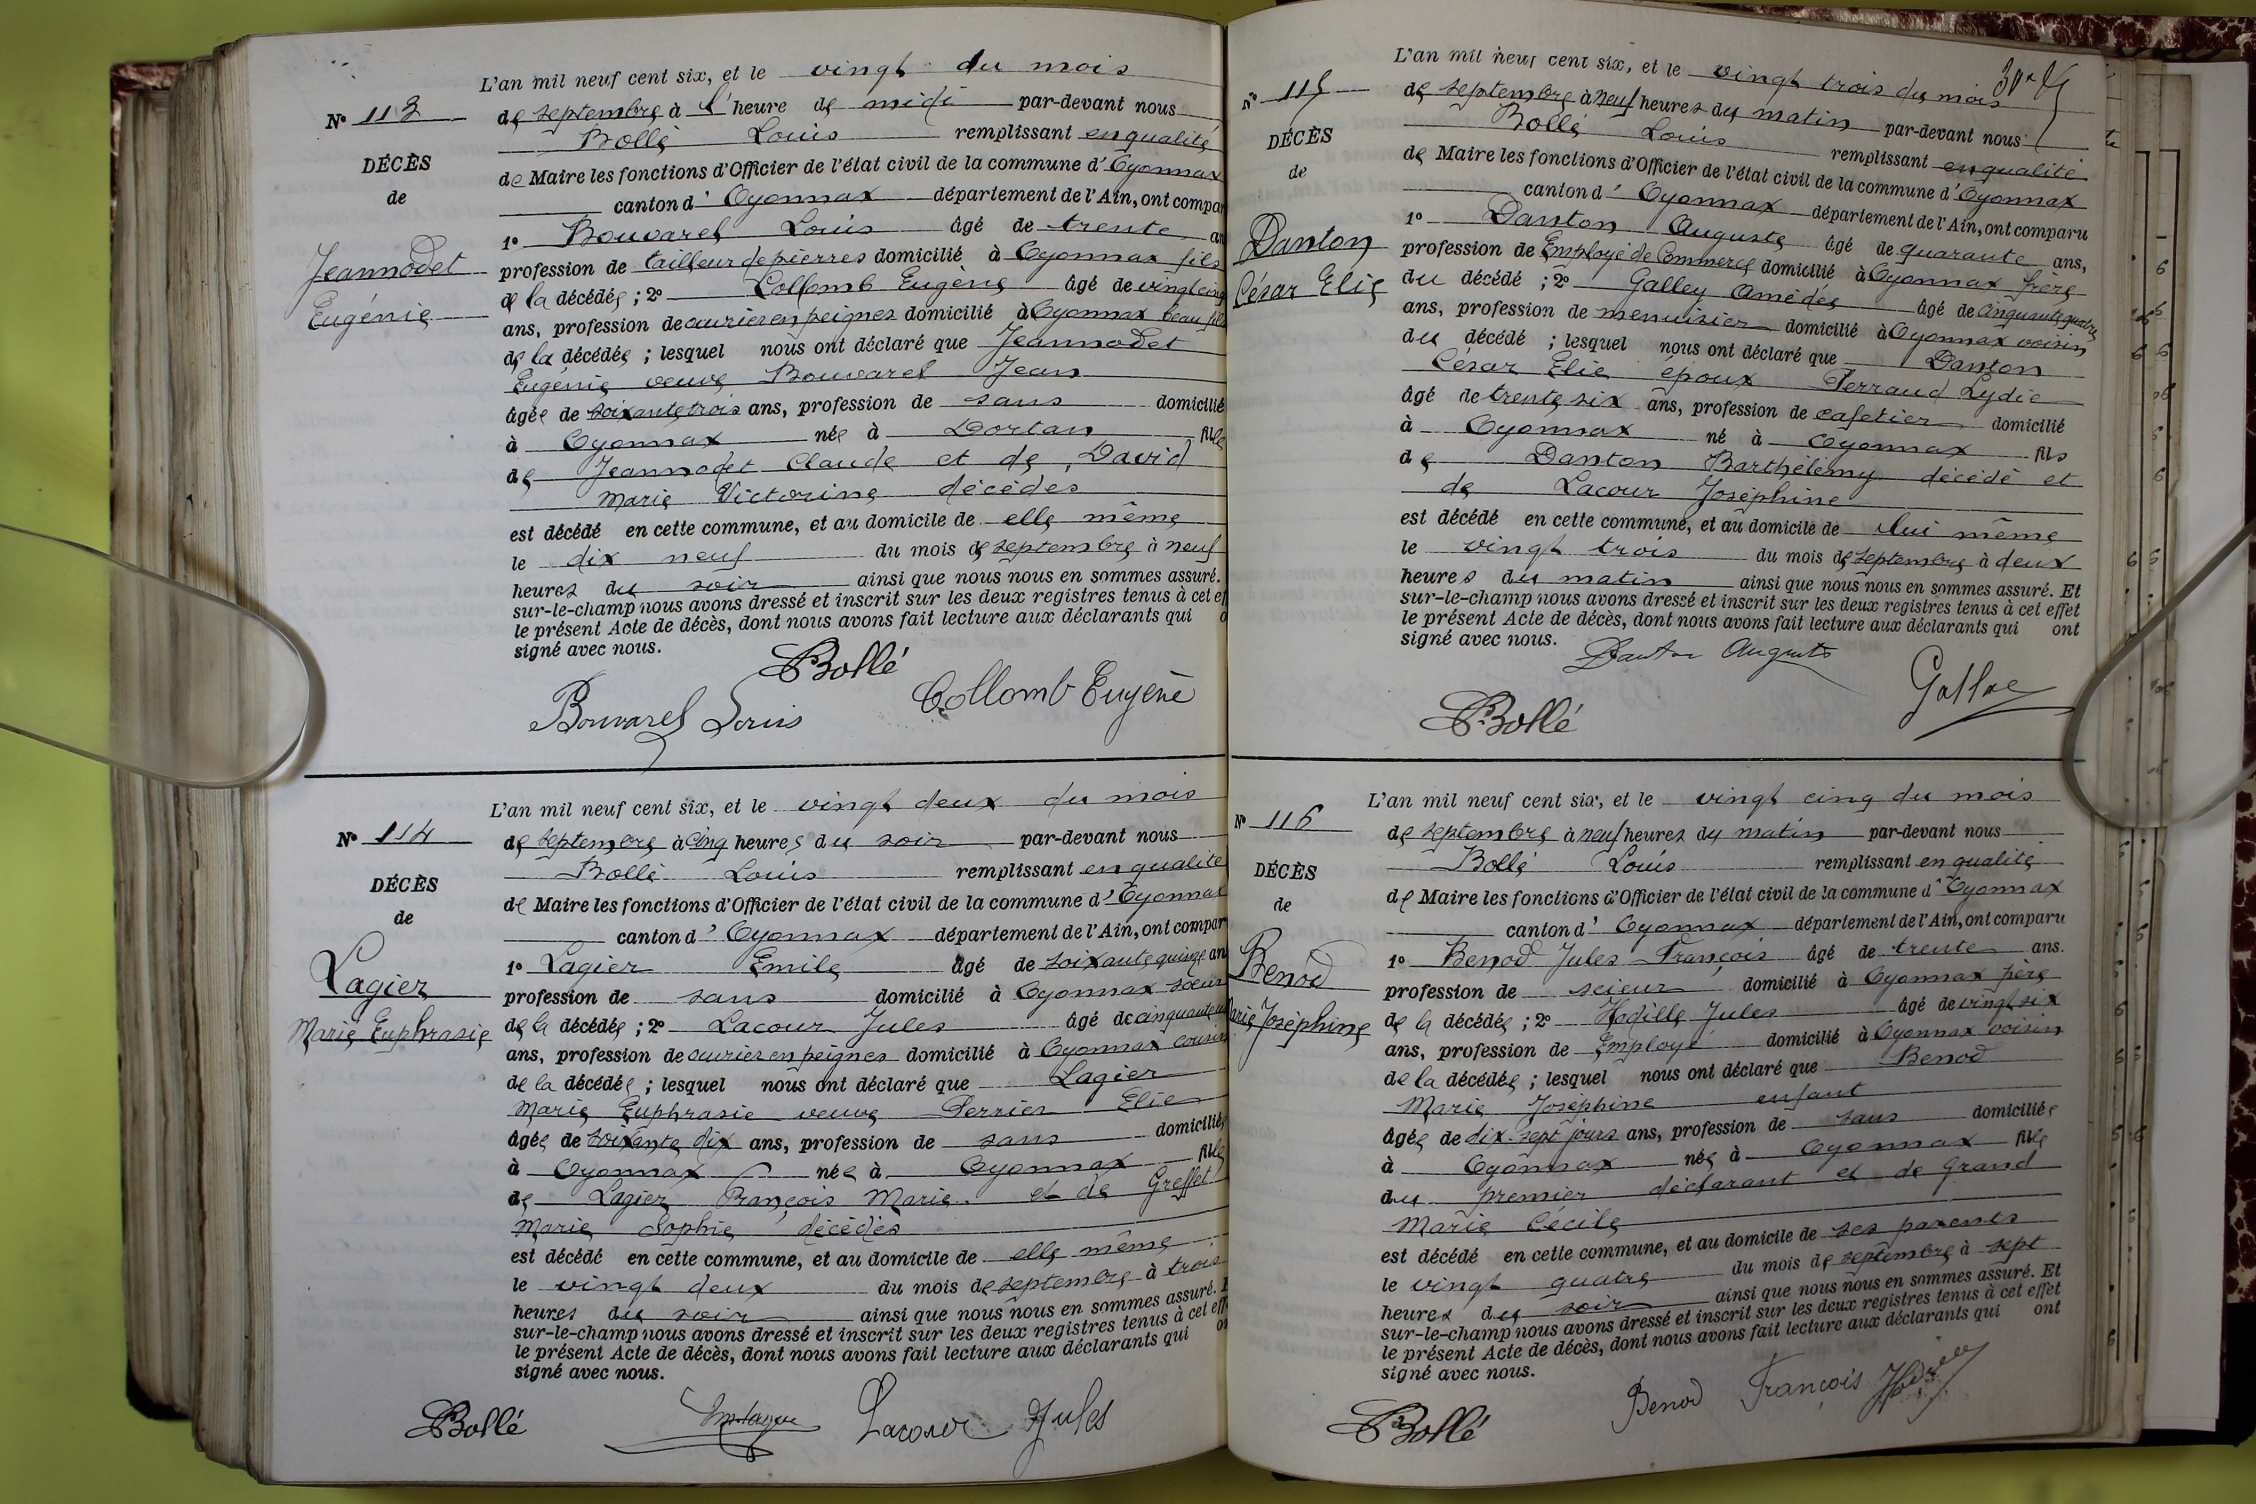 L'an mil neuf cent six, et le vingt du mois
Nº 113
de septembre à l'heure de midi par-devant nous
Bollé Louis remplissant en qualité
DÉCÈS
de Maire les fonctions d'Officier de l'état civil de la commune d'Oyonnax
de
canton d'Oyonnax département de l'Ain, ont compar
1º Bouvaret Louis âgé de trente an
Jeannodet
profession de tailleur de pierres domicilié à Oyonnax fils
Eugénie
de la décédée ; 2º Collomb Eugène âgé de vingt cinq
ans, profession de ouvrier en peignes domicilié à Oyonnax beau fils
de la décédée ; lesquel nous ont déclaré que Jeannodet
Eugénie veuve Bouvaret Jean
âgée de soixante trois ans, profession de sans domicilié
à Oyonnax née à Dortan fille
de Jeannodet Claude et de David
Marie Victorine décédés
est décédé en cette commune, et au domicile de elle même
le dix neuf du mois de septembre à neuf
heures du soir ainsi que nous nous en sommes assuré.
sur-le-champ nous avons dressé et inscrit sur les deux registres tenus à cet ef
le présent Acte de décès, dont nous avons fait lecture aux déclarants qui o
signé avec nous.
Bollé
Bouvaret Louis Collomb Eugène
L'an mil neuf cent six, et le vingt deux du mois
Nº 114
de septembre à cinq heures du soir par-devant nous
Bollé Louis remplissant en qualité
DÉCÈS
de Maire les fonctions d'Officier de l'état civil de la commune d'Oyonnax
de
canton d'Oyonnax département de l'Ain, ont compar
Lagier
1º Lagier Emile âgé de soixante quinze an
profession de sans domicilié à Oyonnax soeur
Marie Euphrasie
de la décédée ; 2º Lacour Jules âgé de cinquante
ans, profession de ouvrier en peignes domicilié à Oyonnax cousin
de la décédée ; lesquel nous ont déclaré que Lagier
Marie Euphrasie veuve Perrier Elie
âgée de soixante dix ans, profession de sans domiciliée
à Oyonnax née à Oyonnax fille
de Lagier François Marie et de Greffet
Marie Sophie décédés
est décédé en cette commune, et au domicile de elle même
le vingt deux du mois de septembre à trois
heures du soir ainsi que nous nous en sommes assuré. E
sur-le-champ nous avons dressé et inscrit sur les deux registres tenus à cet eff
le présent Acte de décès, dont nous avons fait lecture aux déclarants qui on
signé avec nous.
Bollé Lacour Jules
L'an mil neuf cent six, et le vingt trois du mois
Nº 115
de septembre à neuf heures du matin par-devant nous
Bollé Louis remplissant en qualité
DÉCÈS
de Maire les fonctions d'Officier de l'état civil de la commune d'Oyonnax
de
canton d'Oyonnax département de l'Ain, ont comparu
1º Danton Auguste âgé de quarante ans,
Danton
profession de Employé de Commerce domicilié à Oyonnax frère
César Elie
du décédé ; 2º Galley Amédée âgé de cinquante quatre
ans, profession de menuisier domicilié à Oyonnax voisin
du décédé ; lesquel nous ont déclaré que Danton
César Elie époux Ferraud Lydie
âgé de trente six ans, profession de cafetier domicilié
à Oyonnax né à Oyonnax fils
de Danton Barthélémy décédé et
de Lacour Joséphine
est décédé en cette commune, et au domicile de lui même
le vingt trois du mois de septembre à deux
heures du matin ainsi que nous nous en sommes assuré. Et
sur-le-champ nous avons dressé et inscrit sur les deux registres tenus à cet effet
le présent Acte de décès, dont nous avons fait lecture aux déclarants qui ont
signé avec nous.
Danton Auguste
Bollé
L'an mil neuf cent six, et le vingt cinq du mois
Nº 116
de septembre à neuf heures du matin par-devant nous
Bollé Louis remplissant en qualité
DÉCÈS
de Maire les fonctions d'Officier de l'état civil de la commune d'Oyonnax
de
canton d'Oyonnax département de l'Ain, ont comparu
Benod
1º Benod Jules François âgé de trente ans.
profession de scieur domicilié à Oyonnax père
Marie Joséphine
de la décédée ; 2º Hodille Jules âgé de vingt six
ans, profession de Employé domicilié à Oyonnax voisin
de la décédée ; lesquel nous ont déclaré que Benod
Marie Joséphine enfant
âgée de dix-sept jours ans, profession de sans domiciliée
à Oyonnax née à Oyonnax fille
du premier déclarant et de Grand
Marie Cécile
est décédé en cette commune, et au domicile de ses parents
le vingt quatre du mois de septembre à sept
heures du soir ainsi que nous nous en sommes assuré. Et
sur-le-champ nous avons dressé et inscrit sur les deux registres tenus à cet effet
le présent Acte de décès, dont nous avons fait lecture aux déclarants qui ont
signé avec nous.
Bollé Benod François